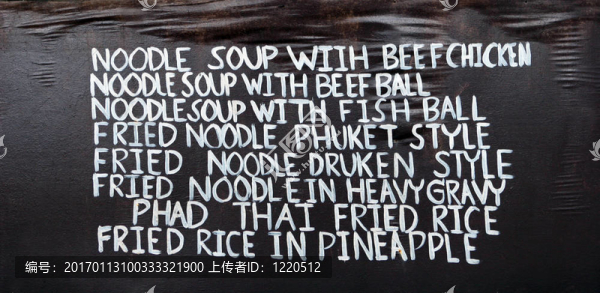 NOODLE SOUP WITH BEEFCHICKEN
NOODLE SOUP WITH BEEF BALL
NOODLE SOUP WITH FISH BALL
FRIED NOODLE PHUKET STYLE
FRIED NOODLE DRUKEN STYLE
FRIED NOODLE IN HEAVY GRAVY
PHAD THAI FRIED RICE
FRIED RICE IN PINEAPPLE
编号：20170113100333321900 上传者ID：1220512